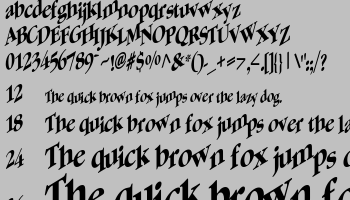 abcdefghijklmnopqrstuvwxyz
ABCDEFGHIJKLMNOPQRSTUVWXYZ
12 The quick brown fox jumps over the lazy dog.
18 The quick brown fox jumps over the la
24 The quick brown fox jumps
The quick brown fo